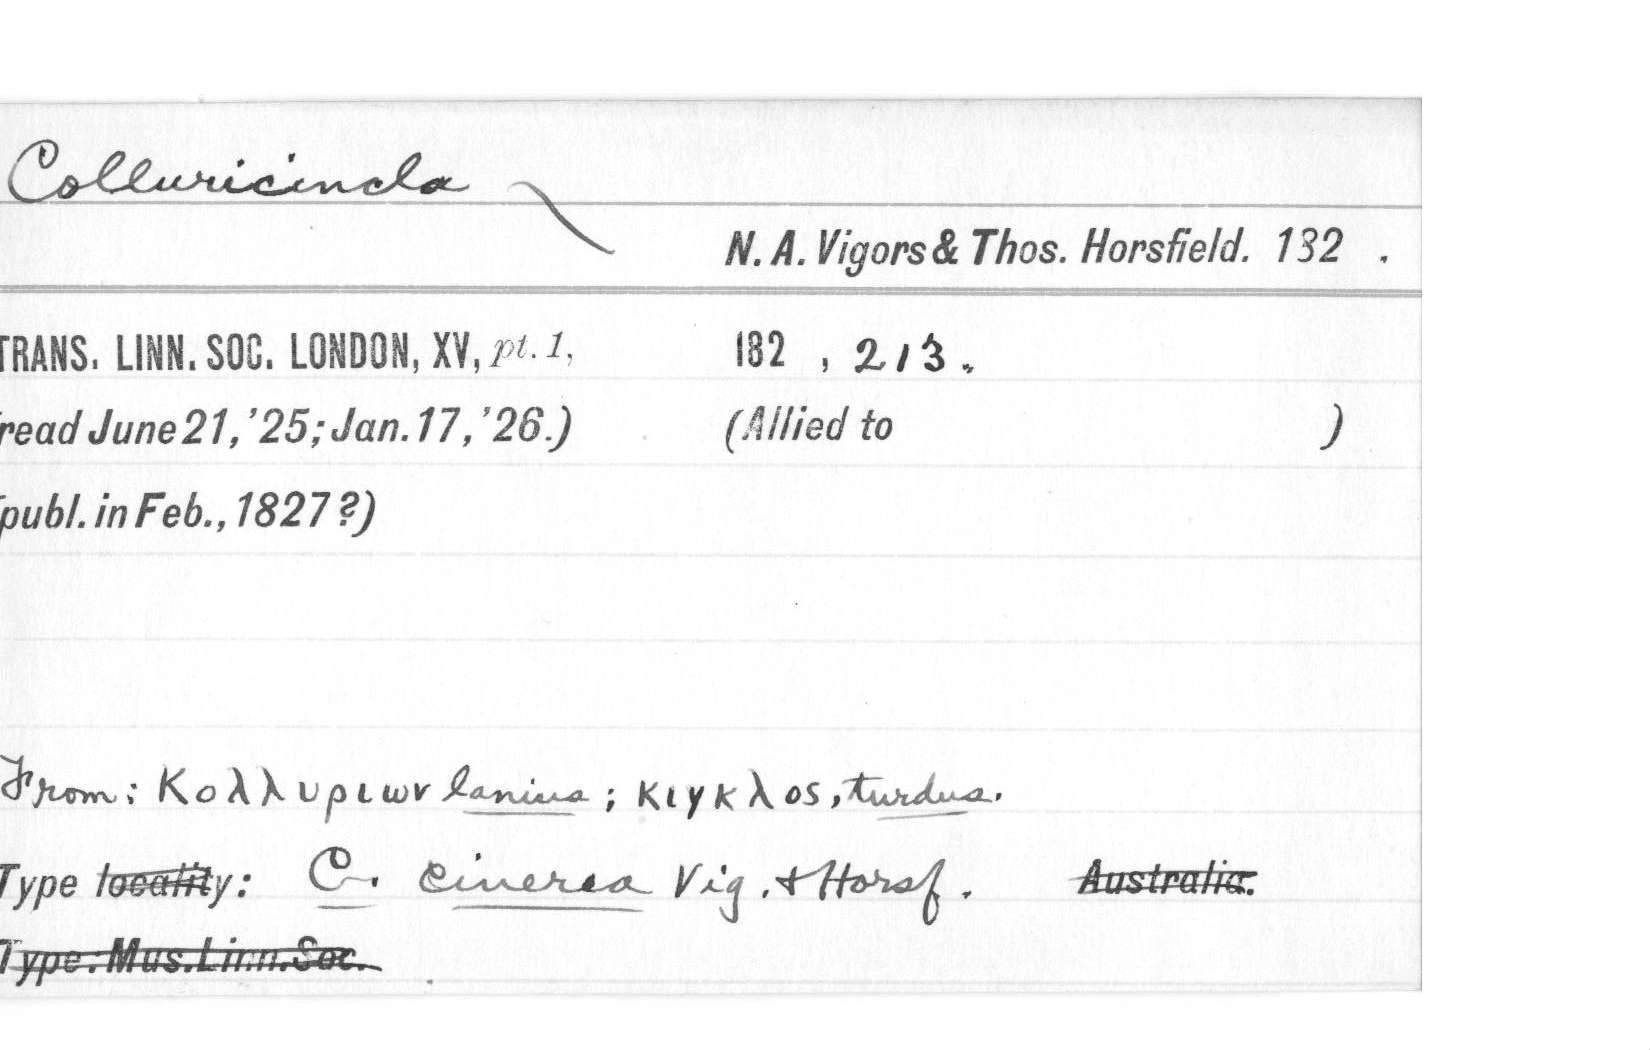 Colluricincla
N. A. Vigors & Thos. Horsfield. 182 .
TRANS. LINN. SOC. LONDON, XV, pt. 1, 182 , 213.
(read June 21, '25; Jan. 17, '26.) (Allied to )
(publ. in Feb., 1827?)
From: Κολλυριων lanius; κιγκλος, turdus.
Type locality: C. cinerea Vig. & Horsf. Australia.
Type. Mus. Linn. Soc.